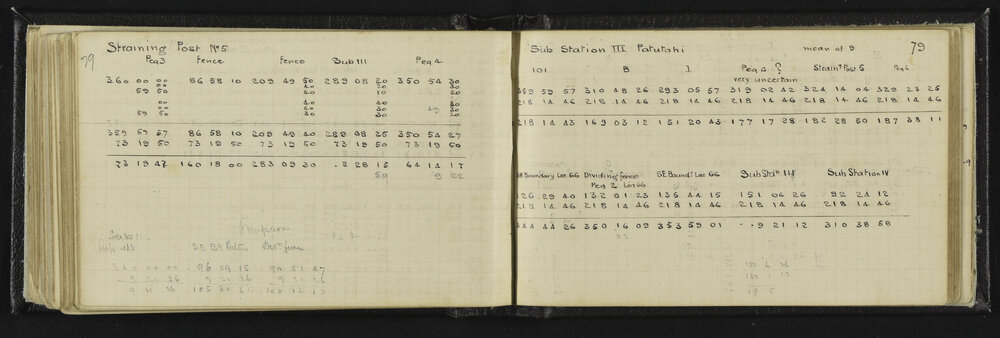 79
Straining Post No 5
Peg 3 Fence Fence Sub III Peg 4
360 00 00 86 58 10 209 49 50 289 08 20 350 54 30
59 60
59 50
359 59 57 86 58 10 209 49 40 289 08 25 350 54 27
73 19 50 73 19 50 73 19 50 73 19 50 73 19 50
73 19 47 160 18 00 283 09 30 - 2 28 15 64 14 17
59 9 22
Simpson
360 00 00 96 09 15 90 51 47
- 9 21 26 9 21 26 9 21 26
Sub Station III Patutahi mean of 9 79
101 B 1 Peg 4 ? Strain'g Post 5 Peg 6
very uncertain
359 59 57 310 48 26 293 05 57 319 02 42 324 14 04 329 23 25
218 14 46 218 14 46 218 14 46 218 14 46 218 14 46 218 14 46
218 14 43 169 03 12 151 20 43 177 17 28 182 28 50 187 38 11
Boundary Lot 66 Dividing fence SE Bound'y Lot 66 Sub Sta'n II Sub Station IV
Peg 2 Lot 66
126 29 40 132 01 23 135 44 15 151 06 26 92 24 12
218 14 46 218 14 46 218 14 46 218 14 46 218 14 46
344 44 26 350 16 09 353 59 01 - 9 21 12 310 38 58